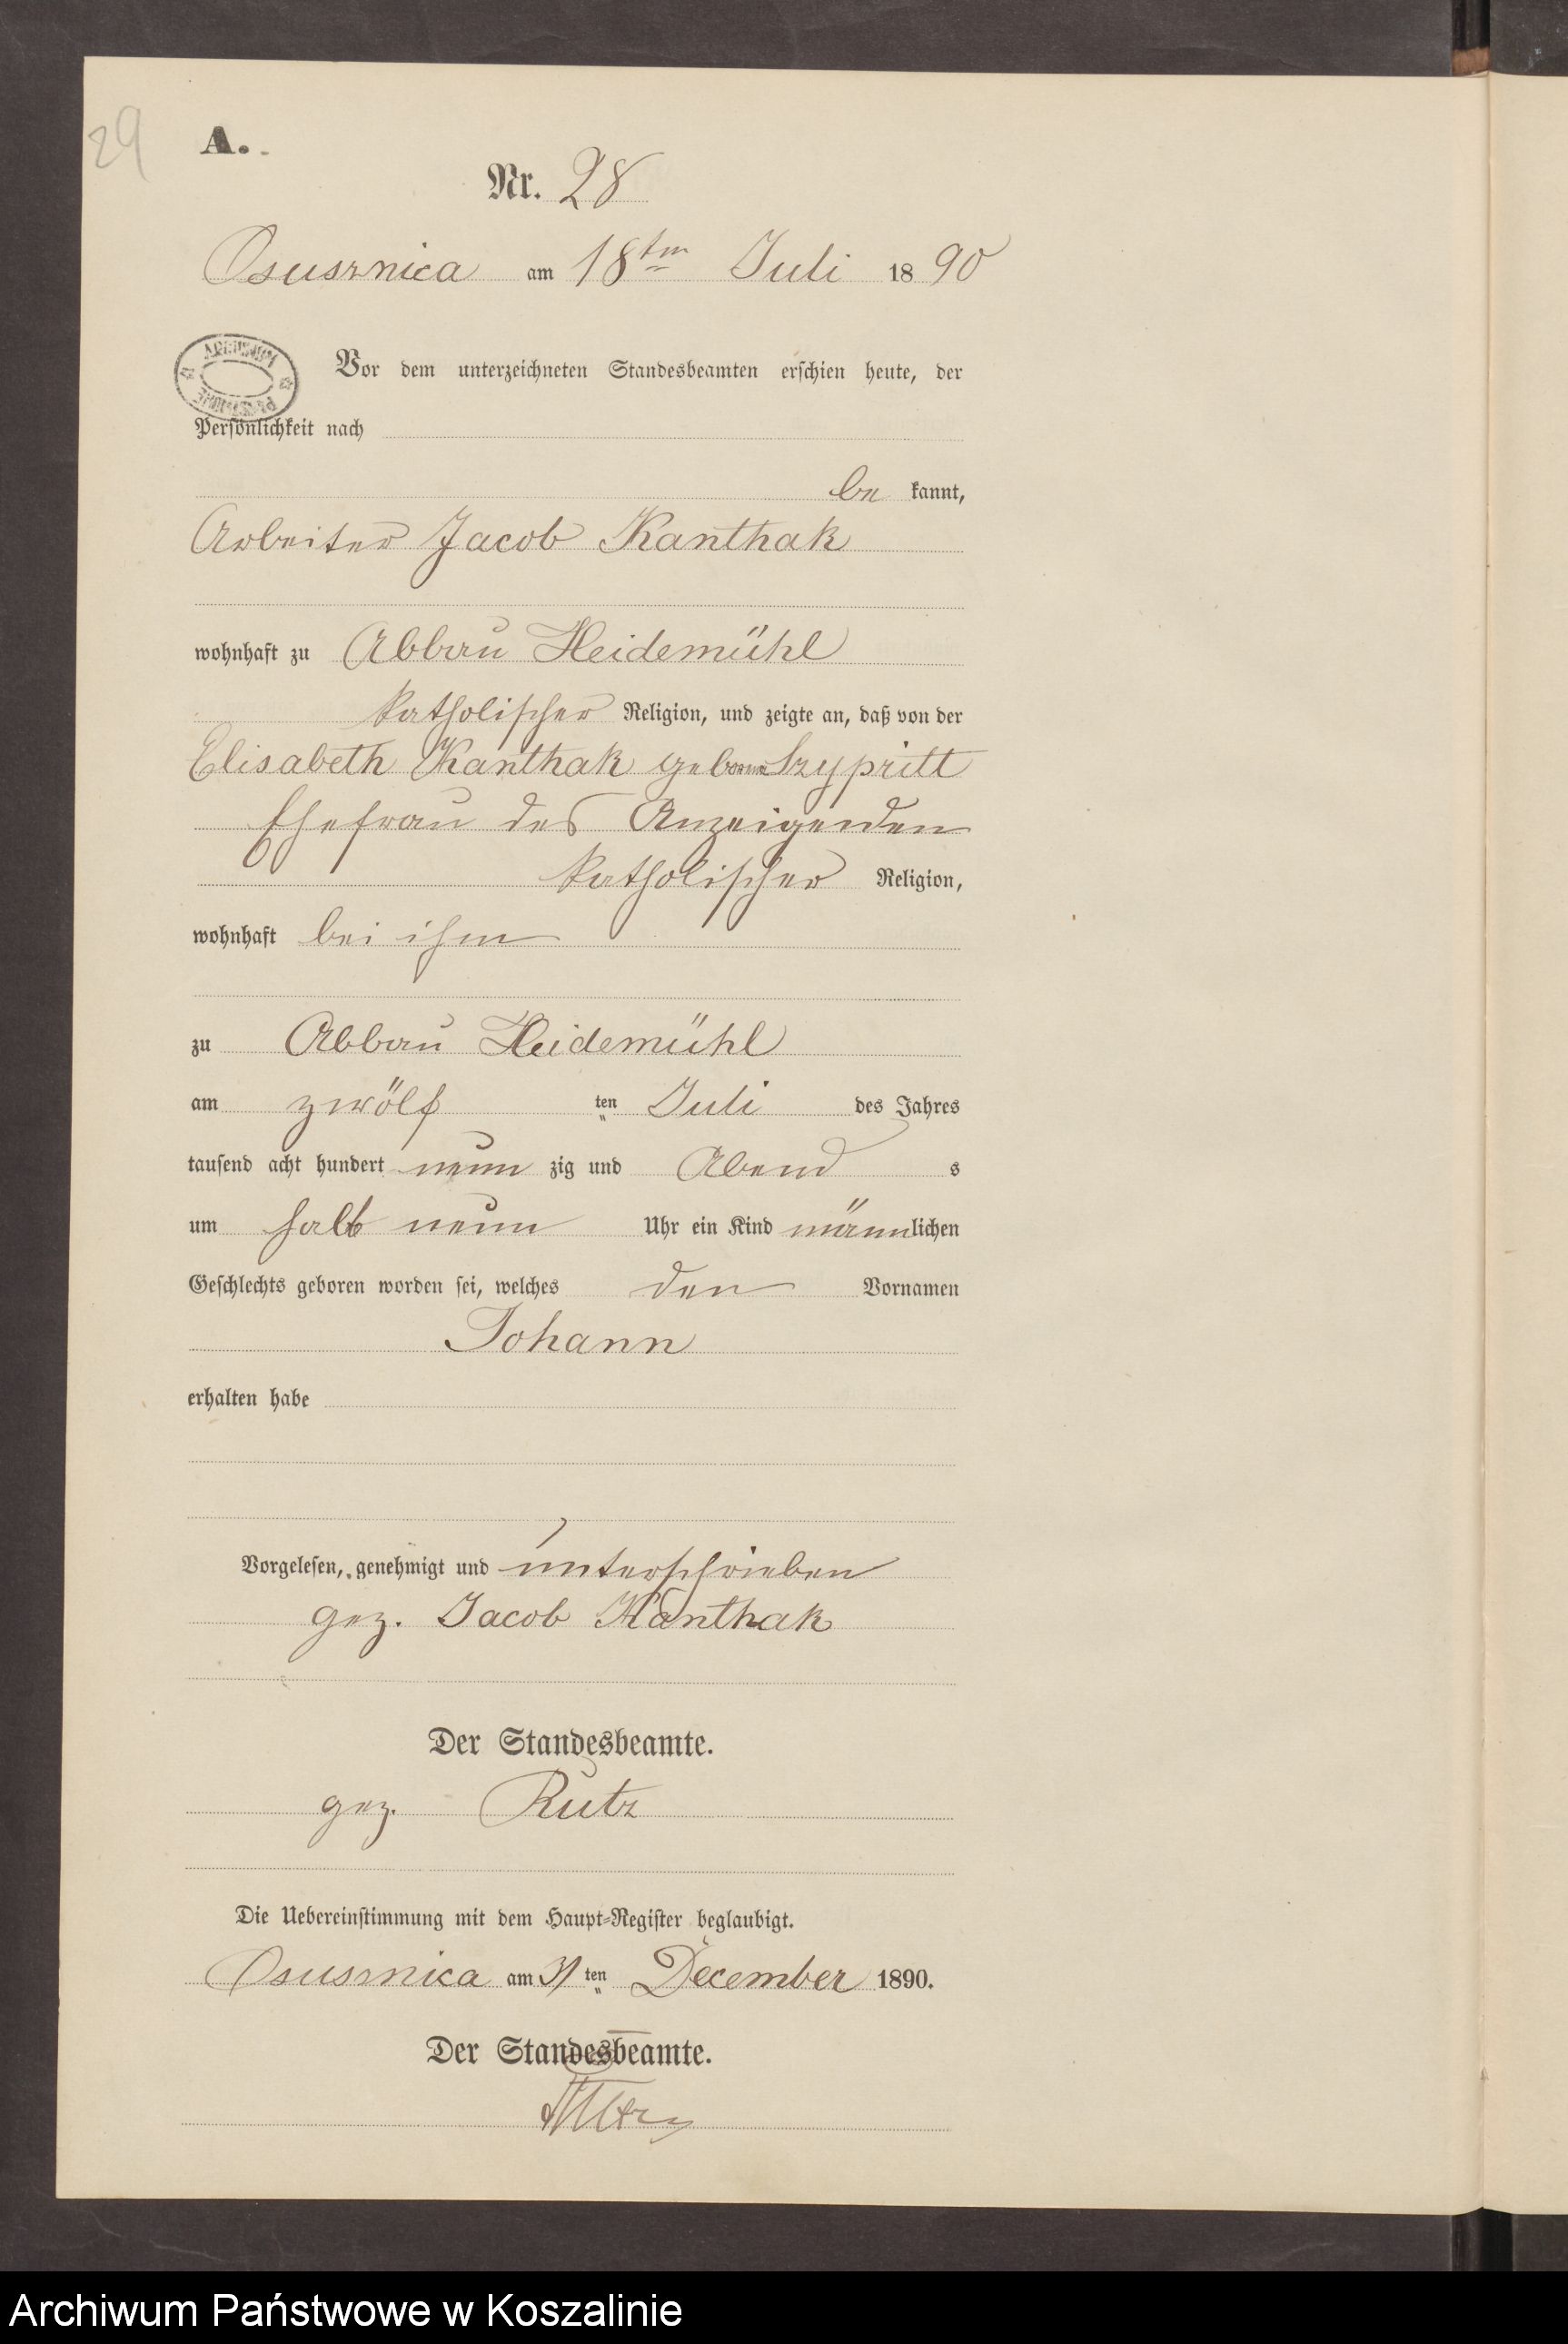 29
A.
Nr. 28
Osusznica am 18ten Juli 1890
ARCHIWUM
Vor dem unterzeichneten Standesbeamten erschien heute, der
Persönlichkeit nach
be kannt,
Arbeiter Jacob Kanthak
wohnhaft zu Abbau Heidemühl
katholischer Religion, und zeigte an, daß von der
Elisabeth Kanthak geborene Szypritt
Ehefrau des Anzeigenden
katholischer Religion,
wohnhaft bei ihm
zu Abbau Heidemühl
am zwölf ten Juli des Jahres
tausend acht hundert neun zig und Abend s
um halb neun Uhr ein Kind männlichen
Geschlechts geboren worden sei, welches den Vornamen
Johann
erhalten habe
Vorgelesen, genehmigt und unterschrieben
gez. Jacob Kanthak
Der Standesbeamte.
gez. Rutz
Die Uebereinstimmung mit dem Haupt-Register beglaubigt.
Osusznica am 31ten December 1890.
Der Standesbeamte.
Archiwum Państwowe w Koszalinie